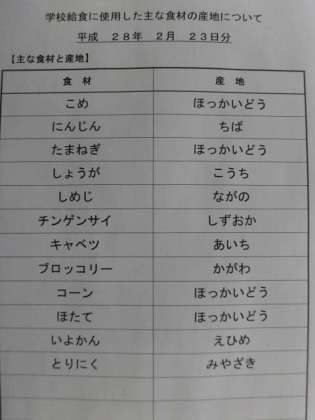 学校給食に使用した主な食材の産地について
平成 28年 2月 23日分
【主な食材と産地】
食 材 産 地
こめ ほっかいどう
にんじん ちば
たまねぎ ほっかいどう
しょうが こうち
しめじ ながの
チンゲンサイ しずおか
キャベツ あいち
ブロッコリー かがわ
コーン ほっかいどう
ほたて ほっかいどう
いよかん えひめ
とりにく みやざき